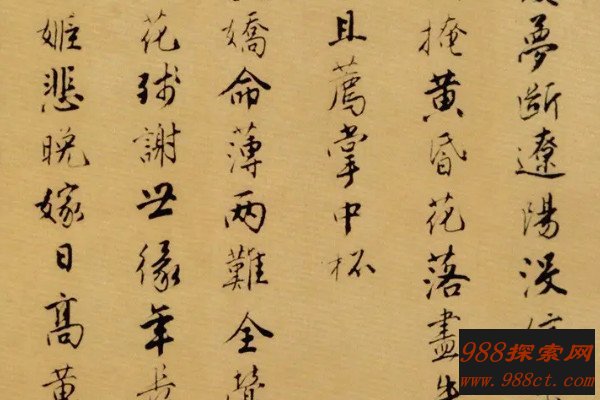 夢斷遼陽沒信
掩黄昏花落盡
且薦掌中杯
嬌命薄两難全
花殘謝世緣年長
姬悲晚嫁日高黄
988探索网
www.988ct.com